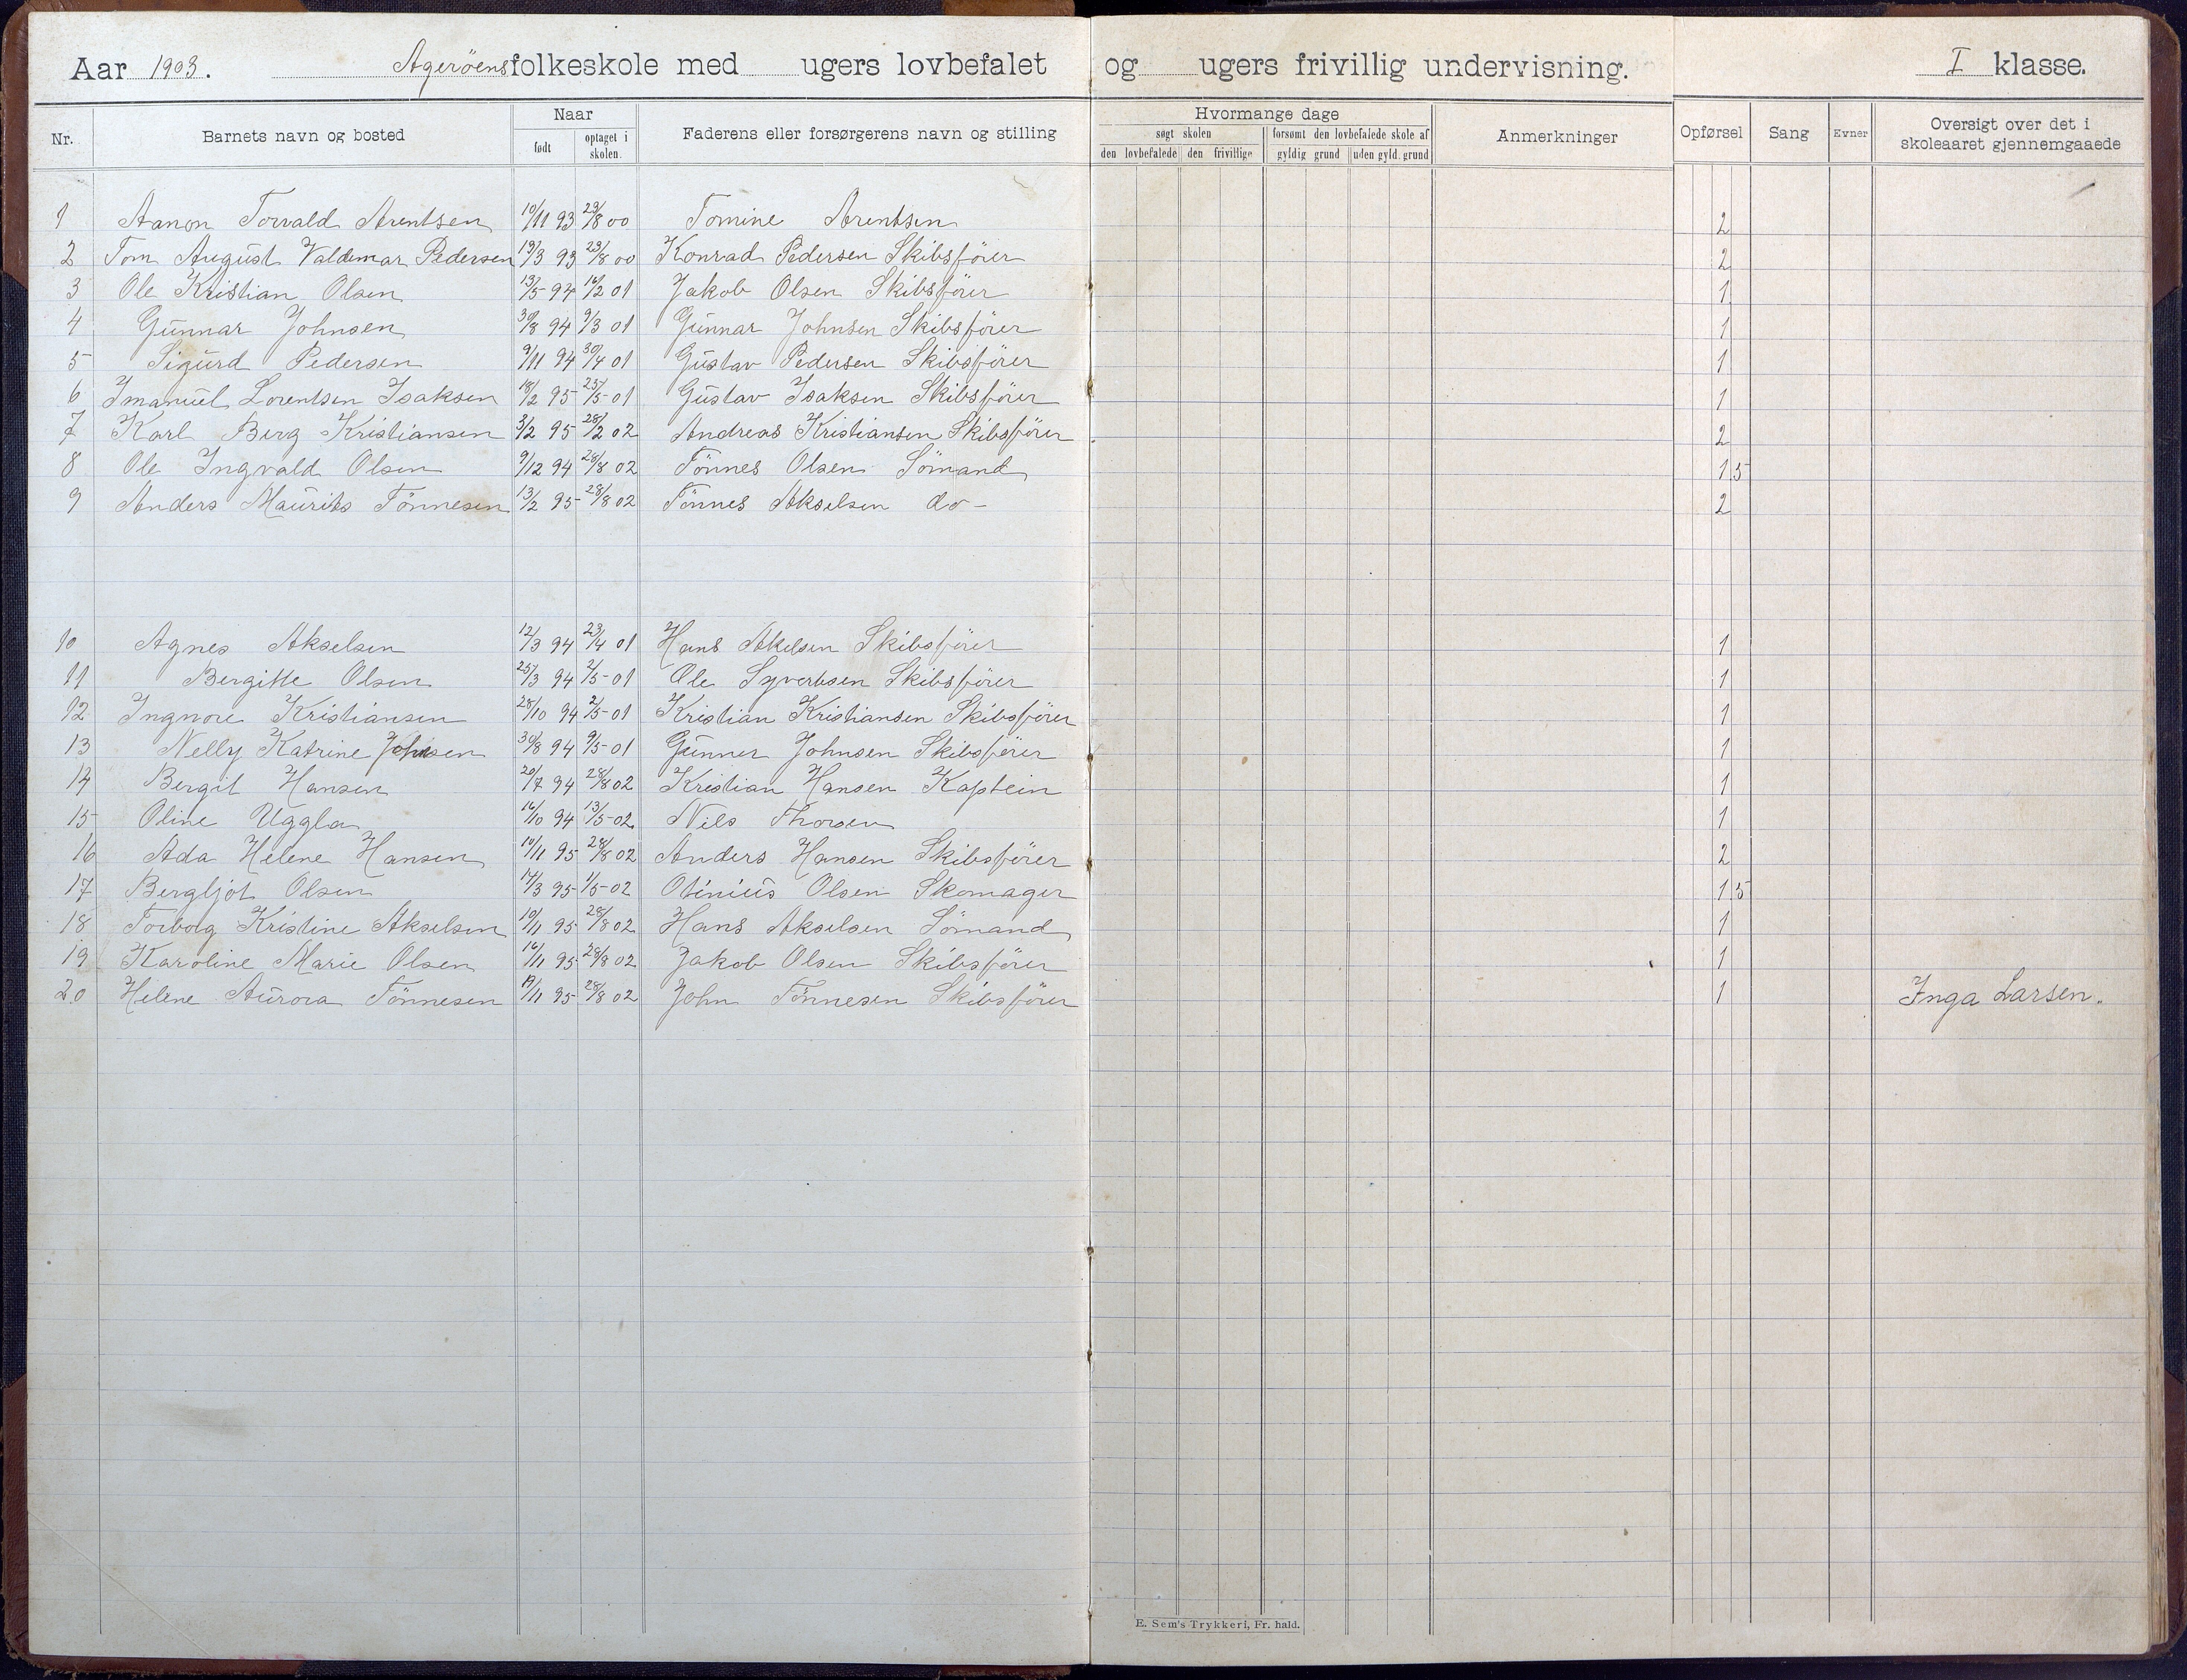 Aar 1903. Agerøens folkeskole med ugers lovbefalet og ugers frivillig undervisning. I klasse.
Nr. Barnets navn og bosted Naar født optaget i skolen. Faderens eller forsørgerens navn og stilling Hvormange dage søgt skolen den lovbefalede den frivillige forsømt den lovbefalede skole af gyldig grund uden gyld. grund Anmerkninger Opførsel Sang Evner Oversigt over det i skoleaaret gjennemgaaede
1 Aanon Torvald Arentsen 10/11 93 23/8 00 Tomine Arentsen 2
2 Tom August Valdemar Pedersen 19/3 93 23/8 00 Konrad Pedersen Skibsfører 2
3 Ole Kristian Olsen 13/5 94 16/2 01 Jakob Olsen Skibsfører 1
4 Gunnar Johnsen 30/8 94 9/3 01 Gunnar Johnsen Skibsfører 1
5 Sigurd Pedersen 9/11 94 30/4 01 Gustav Pedersen Skibsfører 1
6 Imanuel Lorentsen Isaksen 18/2 95 25/5 01 Gustav Isaksen Skibsfører 1
7 Karl Berg Kristiansen 3/2 95 28/2 02 Andreas Kristiansen Skibsfører 2
8 Ole Ingvald Olsen 9/12 94 28/8 02 Tönnes Olsen Sömand 1,5
9 Anders Maurits Tönnesen 13/2 95 28/8 02 Tönnes Akselsen do - 2
10 Agnes Akselsen 12/3 94 23/4 01 Hans Akelsen Skibsfører 1
11 Bergitte Olsen 25/3 94 2/5 01 Ole Syvertsen Skibsfører 1
12 Ingnore Kristiansen 28/10 94 2/5 01 Kristian Kristiansen Skibsfører 1
13 Nelly Katrine Johnsen 30/8 94 9/5 01 Gunner Johnsen Skibsfører 1
14 Bergit Hansen 20/7 94 28/8 02 Kristian Hansen Kaptein 1
15 Oline Uggla 16/10 94 13/5 02 Nils Thorsen 1
16 Ada Helene Hansen 10/11 95 28/8 02 Anders Hansen Skibsfører 2
17 Bergljot Olsen 14/3 95 1/5 02 Otinius Olsen Skomager 1,5
18 Torborg Kristine Akselsen 10/11 95 28/8 02 Hans Akselsen Sömand 1
19 Karoline Marie Olsen 16/11 95 28/8 02 Jakob Olsen Skibsfører 1
20 Helene Aurora Tönnesen 19/11 95 28/8 02 John Tönnesen Skibsfører 1 Inga Larsen.
E. Sem's Trykkeri, Fr. hald.